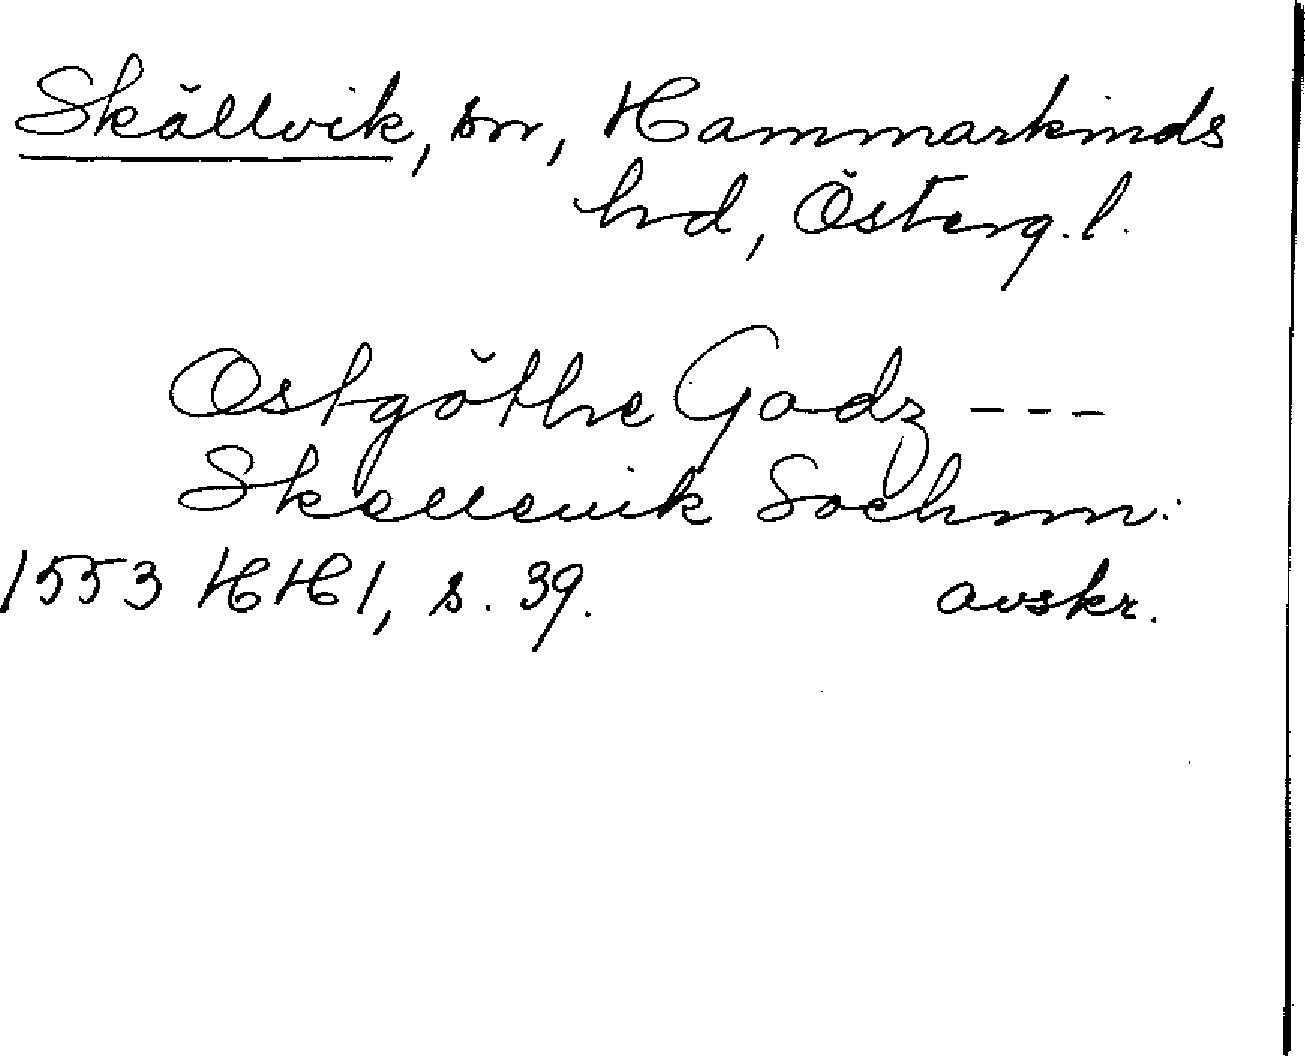 Skällvik, sn, Hammarkinds
hd, Österg.l.
Ostgöthe Godz ---
Skellevik Sochnn:
1553 HH 1, s. 39. avskr.